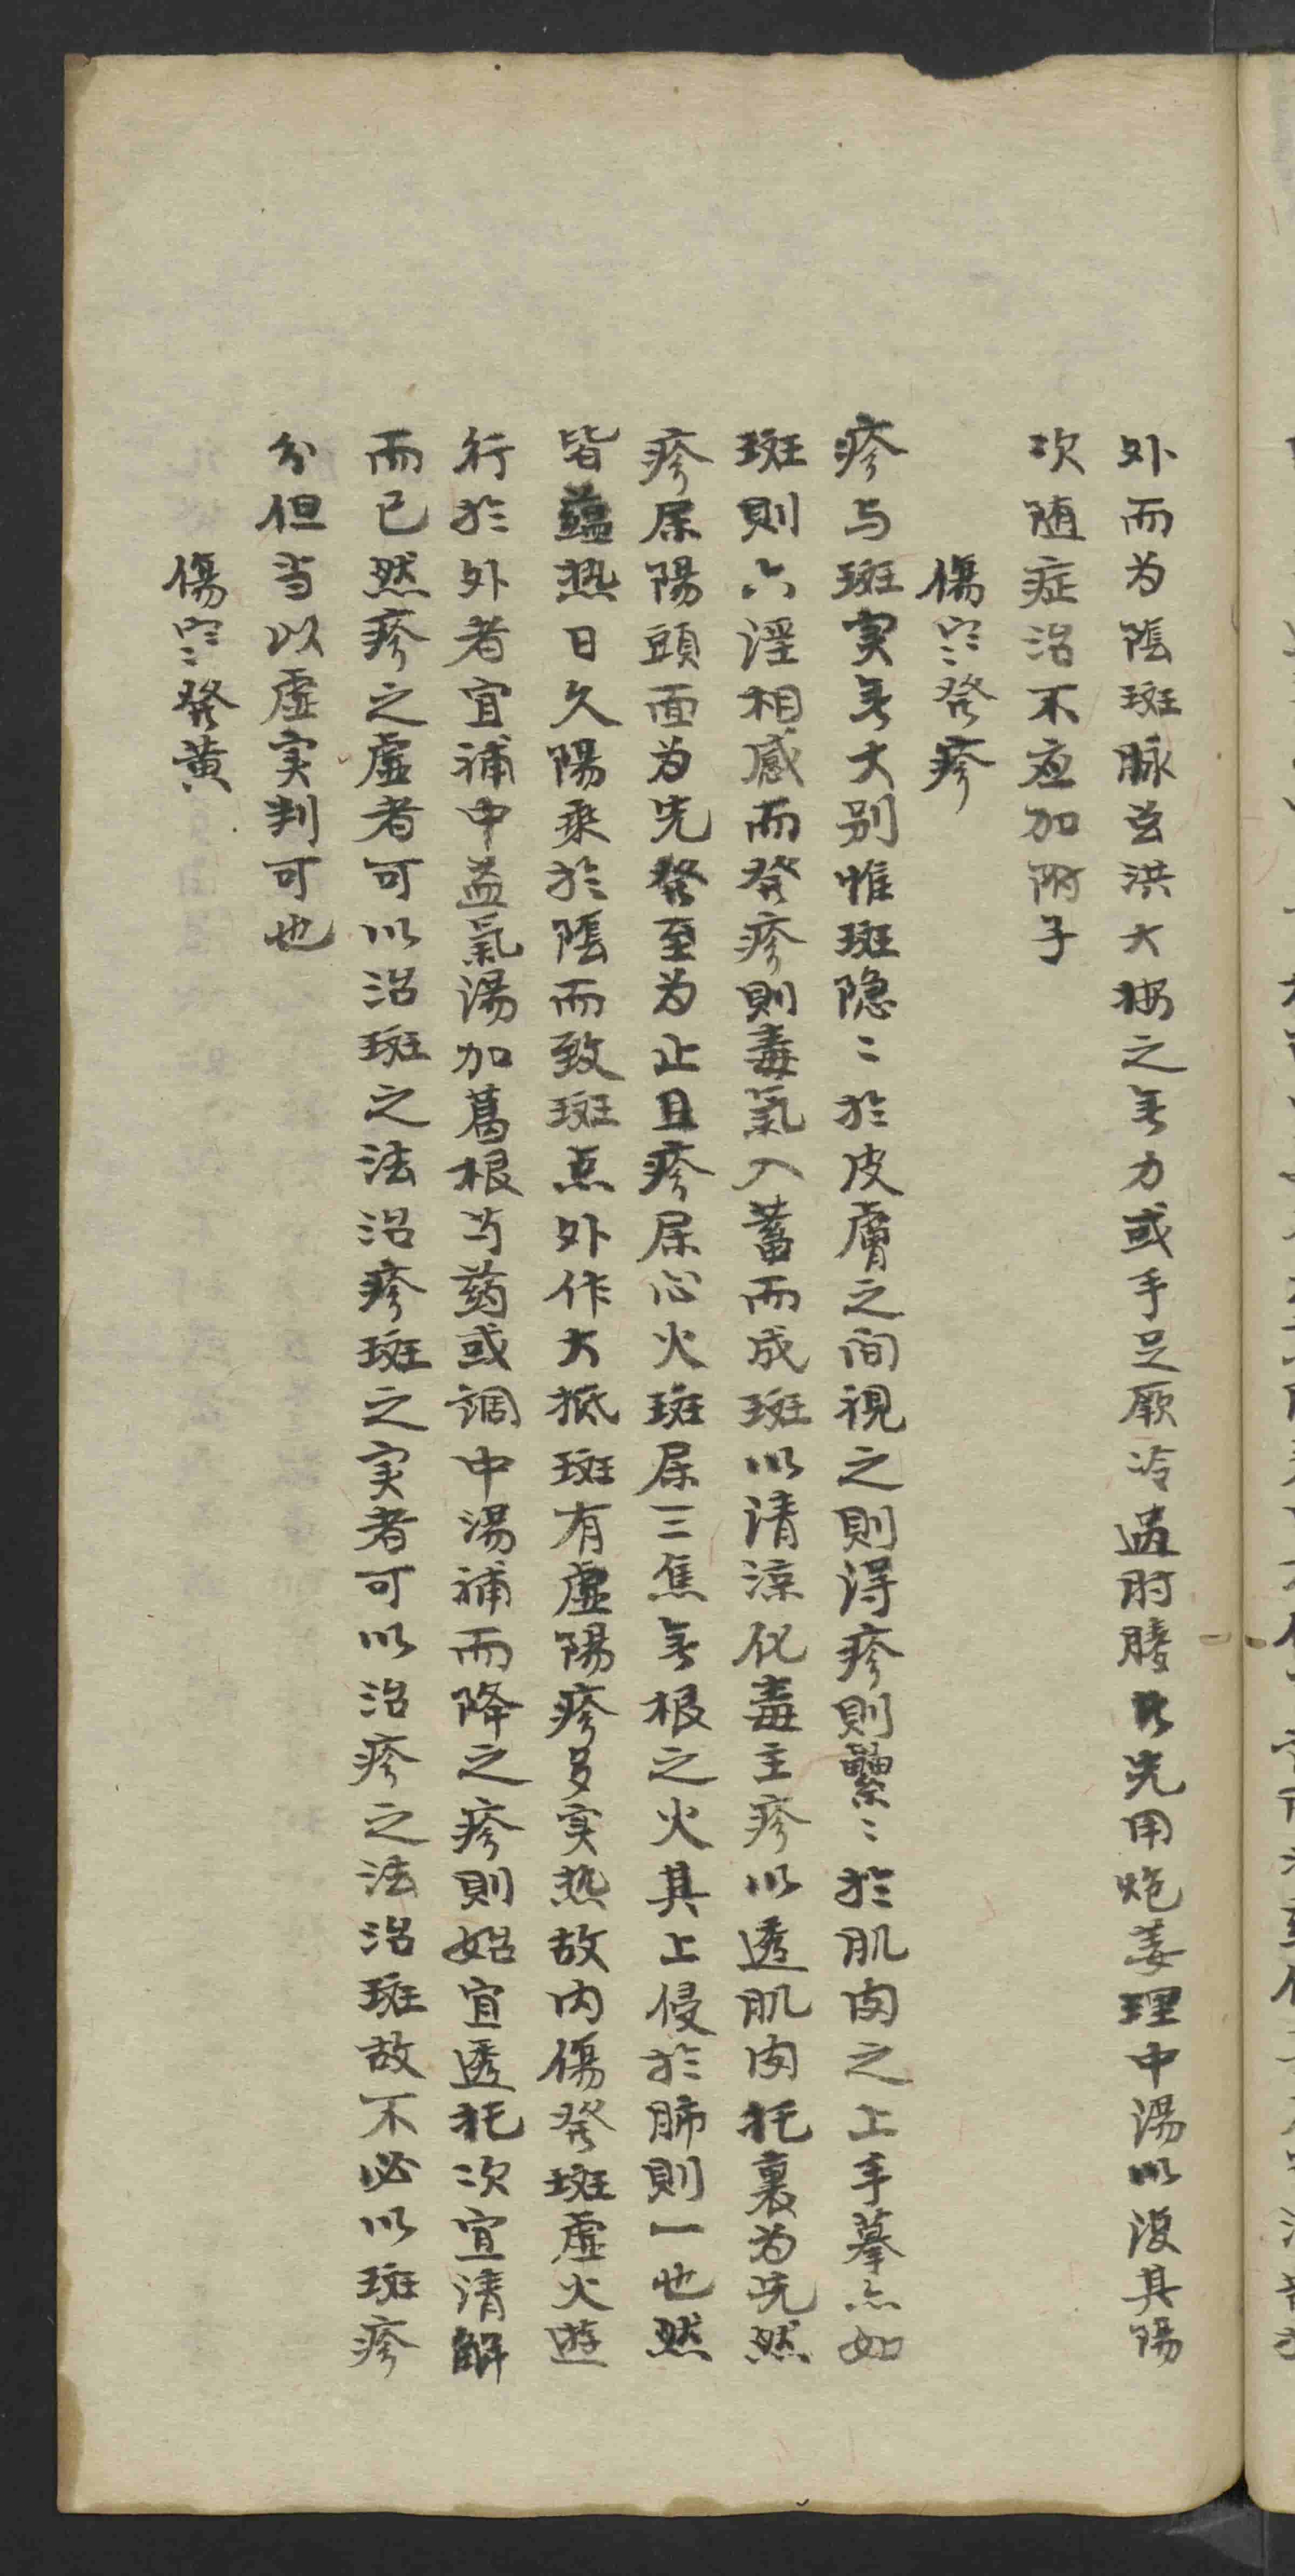 外而为陰斑脉虽洪大按之无力或手足厥冷過肘膝此先用炮姜理中湯以復其陽
次随症治不应加附子
傷寒発疹
疹与斑实无大别惟斑隐〻於皮膚之间視之則得疹則纍〻於肌肉之上手摹亦如
斑則六淫相感而発疹則毒氣入蓄而成斑以清涼化毒主疹以透肌肉托裏为先然
疹属陽頭面为先発至为止且疹属心火斑属三焦无根之火其上侵於肺則一也然
皆蘊热日久陽乘於陰而致斑点外作大抵斑有虚陽疹多实热故内傷発斑虚火遊
行於外者宜補中益氣湯加葛根芍药或調中湯補而降之疹則始宜透托次宜清解
而已然疹之虚者可以治斑之法治疹斑之实者可以治疹之法治斑故不必以斑疹
分但当以虚实判可也
傷寒発黄